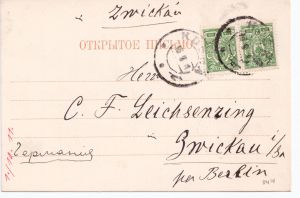 Zwickau
ОТКРЫТОЕ ПИСЬМО
Herrn
C. F. Leichsenring
Zwickau i/Sa
Германия
per Berlin